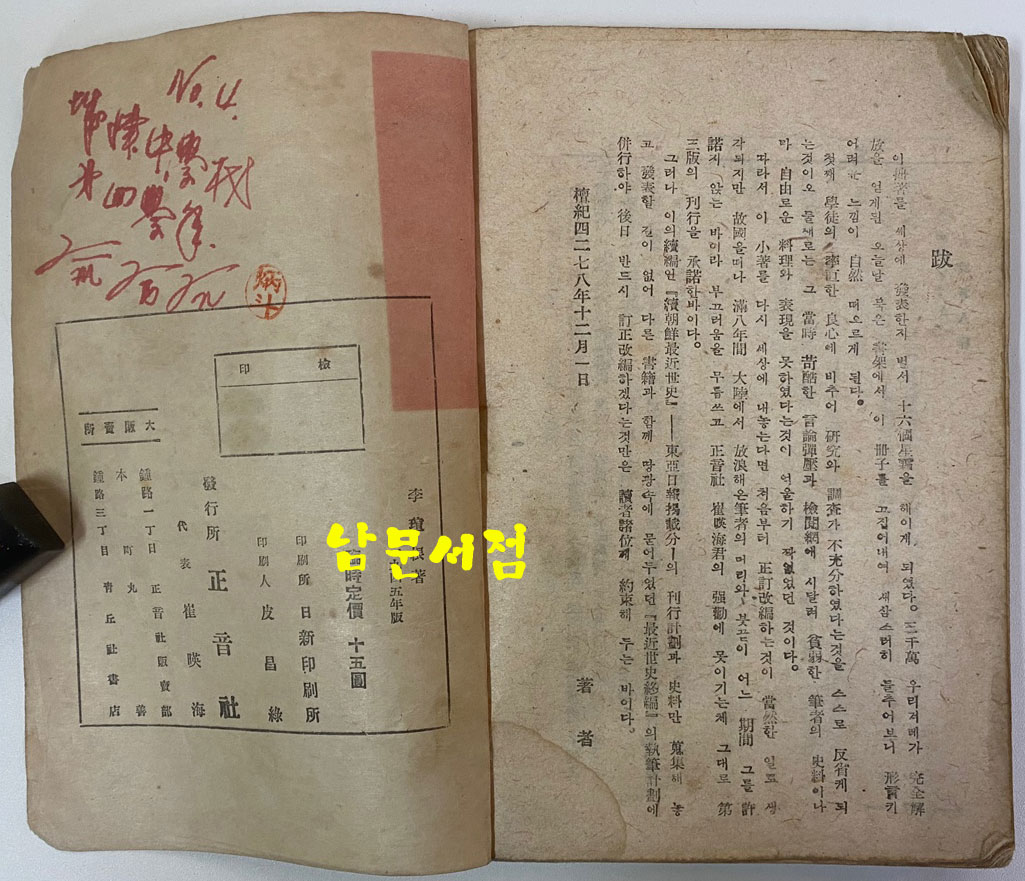 跋
이拙著를 세상에 發表한지 벌서 十六個星霜을 헤이게 되였다。三千萬 우리저레가 完全解
放을 얻게된 오늘날 묵은 書架에서 이 冊子를 끄집어내여 새삼스러히 들추어보니 形言키
어려운 느낌이 自然 떠오르게 된다。
첫째 學徒의 率直한 良心에 비추어 硏究와 調査가 不充分하였다는것을 스스로 反省케 되
는것이오 둘재로는 그 當時 苛酷한 言論彈壓과 檢閱網에 시달려 貧弱한 筆者의 史料이나
마 自由로운 料理와 表現을 못하였다는것이 억울하기 짝없었던 것이다。
따라서 이 小著를 다시 세상에 내놓는다면 처음부터 正訂改編하는것이 當然한 일로 생
각되지만 故國을떠나 滿八年間 大陸에서 放浪해온筆者의 머리와 붓끝이 어느 期間 그를 許
諾지 않는 바이라 부끄러움을 무릅쓰고 正音社 崔暎海君의 强勸에 못이기는체 그대로 第
三版의 刊行을 承諾한바이다。
그러나 이의續編인『續朝鮮最近世史』——東亞日報揭載分—의 刊行計劃과 史料만 蒐集해 놓
고 發表할 길이 없어 다른 書籍과 함께 땅광속에 묻어두었던『最近世史終編』의執筆計劃에
倂行하야 後日 반드시 訂正改編하겠다는것만은 讀者諸位께 約束해 두는 바이다。
檀紀四二七八年十二月一日
著者
No. 4.
中學校
第四學年
檢印
李瑄根著
五年版
時定價 十五圓
印刷所 日新印刷所
印刷人 皮昌綠
發行所 正音社
代表 崔暎海
大阪賣所
鍾路一丁目 正音社販賣部
本町 丸善
鍾路三丁目 靑丘社書店
남문서점